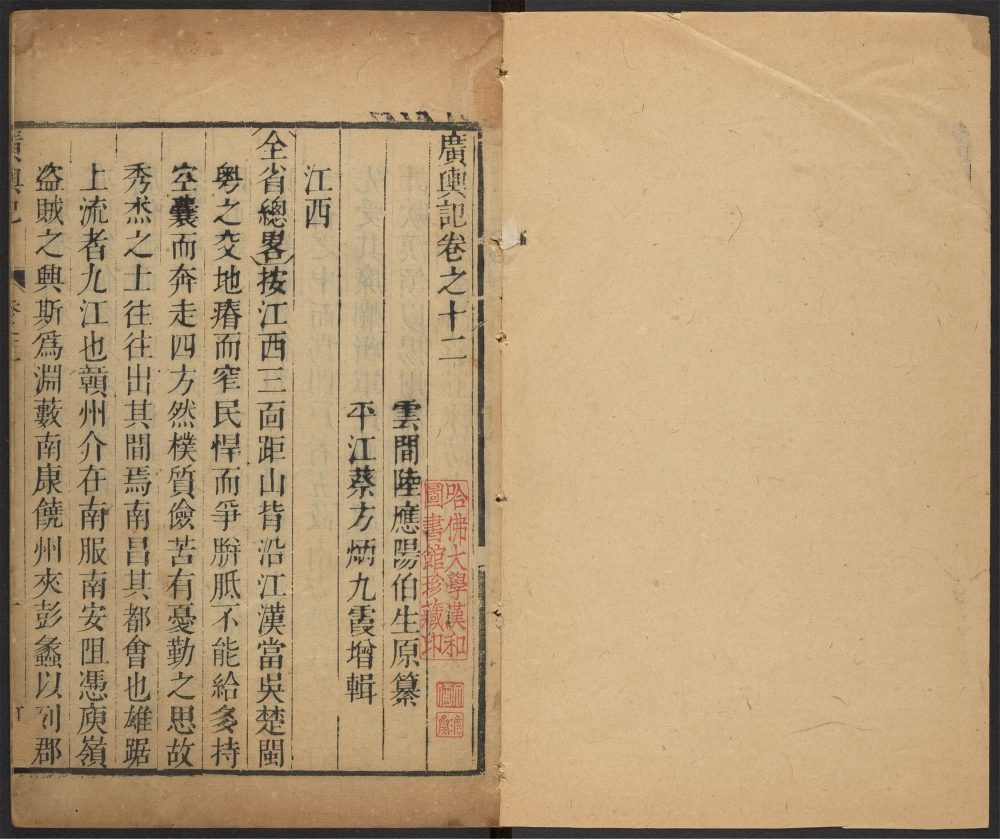 廣輿記卷之十二
雲間陸應陽伯生原纂
平江蔡方炳九霞增輯
江西
全省總畧按江西三面距山背沿江漢當吳楚閩
粤之交地瘠而窄民悍而爭胼胝不能給多持
空囊而奔走四方然樸質儉苦有憂勤之思故
秀杰之士往往出其間焉南昌其都會也雄踞
上流者九江也贛州介在南服南安阻憑庾嶺
盜賊之興斯爲淵藪南康饒州夾彭蠡以列郡
廣輿記
哈佛大學漢和
圖書館珍藏印